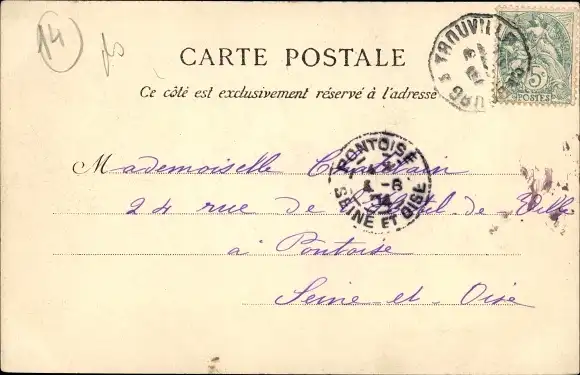 14
CARTE POSTALE
Ce côté est exclusivement réservé à l'adresse
TROUVILLE
5c
POSTES
PONTOISE
SEINE ET OISE
Mademoiselle
24 rue de l'Hôtel de Ville
à Pontoise
Seine-et-Oise